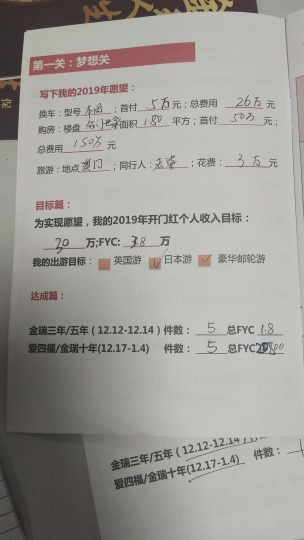 第一关：梦想关
写下我的2019年愿望：
换车：型号 本田；首付 5万元；总费用 26万元
购房：楼盘 面积 180 平方；首付 50万元；
总费用 150万元
旅游：地点 澳门；同行人：；花费：3万元
目标篇：
为实现愿望，我的2019年开门红个人收入目标：
30 万;FYC: 3.8 万
我的出游目标： 英国游 日本游 豪华邮轮游
达成篇：
金瑞三年/五年（12.12-12.14）件数： 5 总FYC 1.8
爱四福/金瑞十年(12.17-1.4) 件数： 5 总FYC
金瑞三年/五年（12.12-12.14
爱四福/金瑞十年(12.17-1.4) 件数：